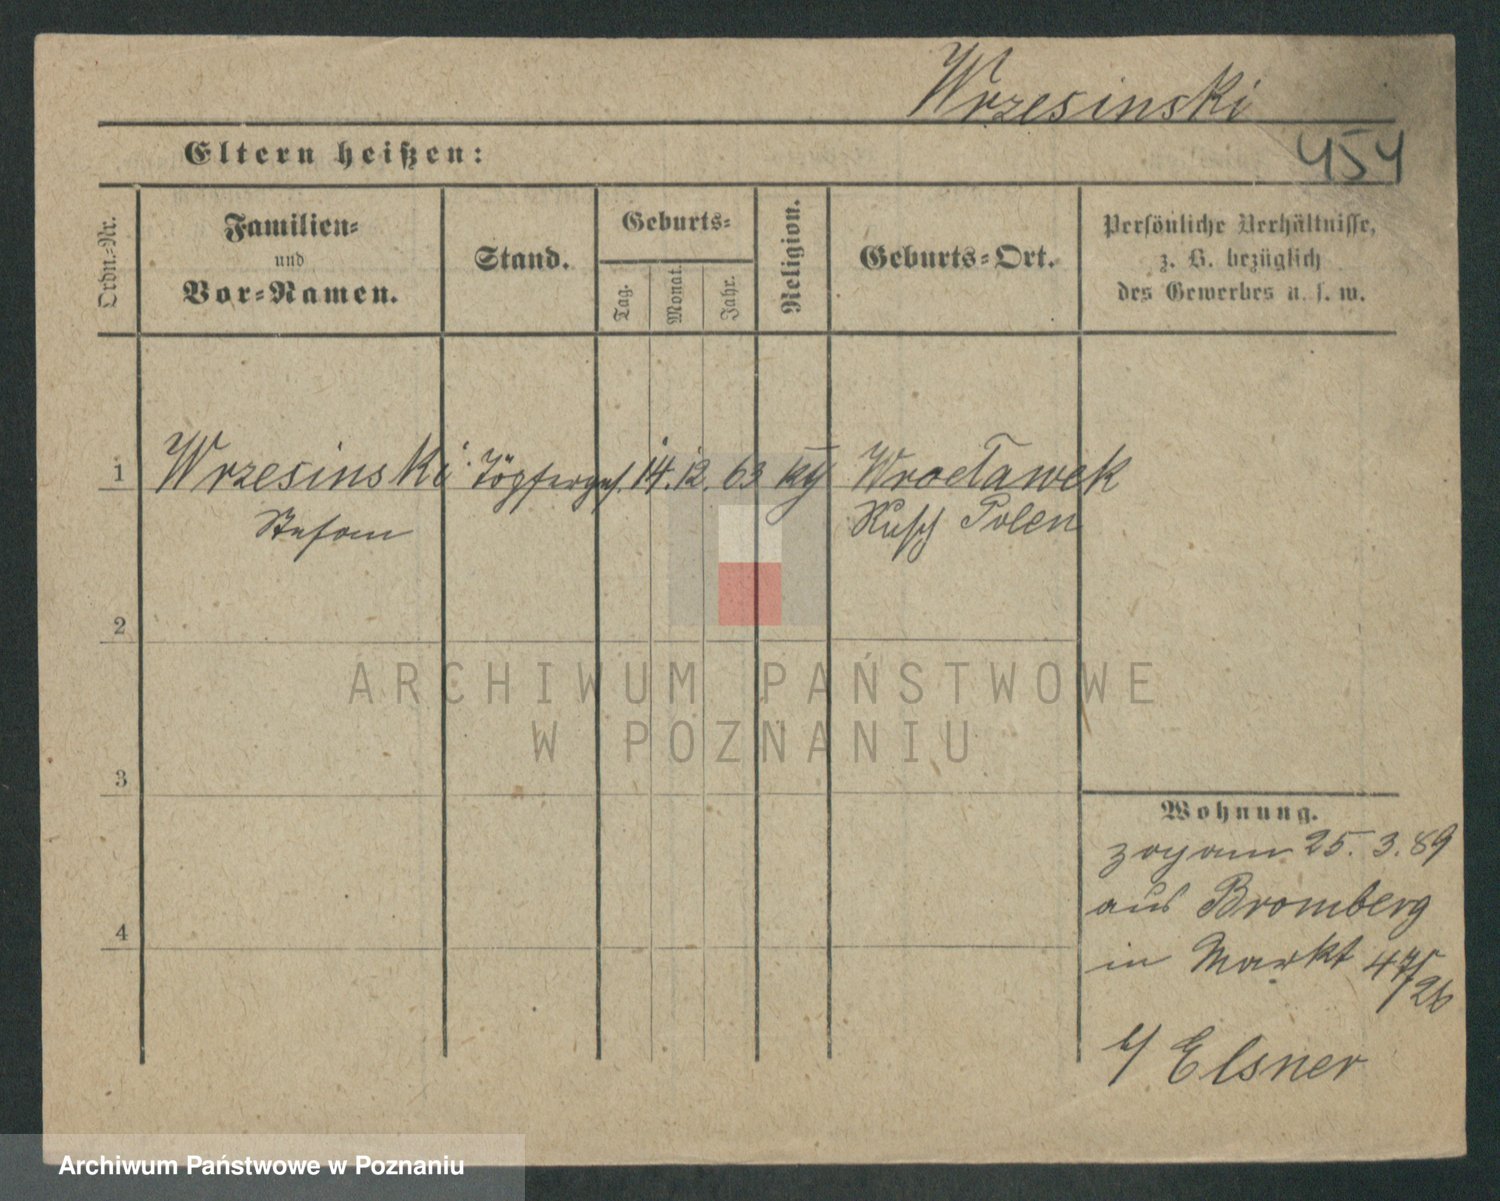 Wrzesinski
Eltern heißen:
454
Ordn.-Nr.
Familien-
und
Vor-Namen.
Stand.
Geburts-
Tag.
Monat.
Jahr.
Religion.
Geburts-Ort.
Persönliche Verhältnisse,
z. B. bezüglich
des Gewerbes u. s. w.
1 Wrzesinski Töpferges. 14. 12. 63 Wrocławek
Stefan Russ Polen
2
3
4
Wohnung.
zog am 25. 3. 89
aus Bromberg
in Markt 47/26
b/ Elsner
ARCHIWUM PAŃSTWOWE
W POZNANIU
Archiwum Państwowe w Poznaniu